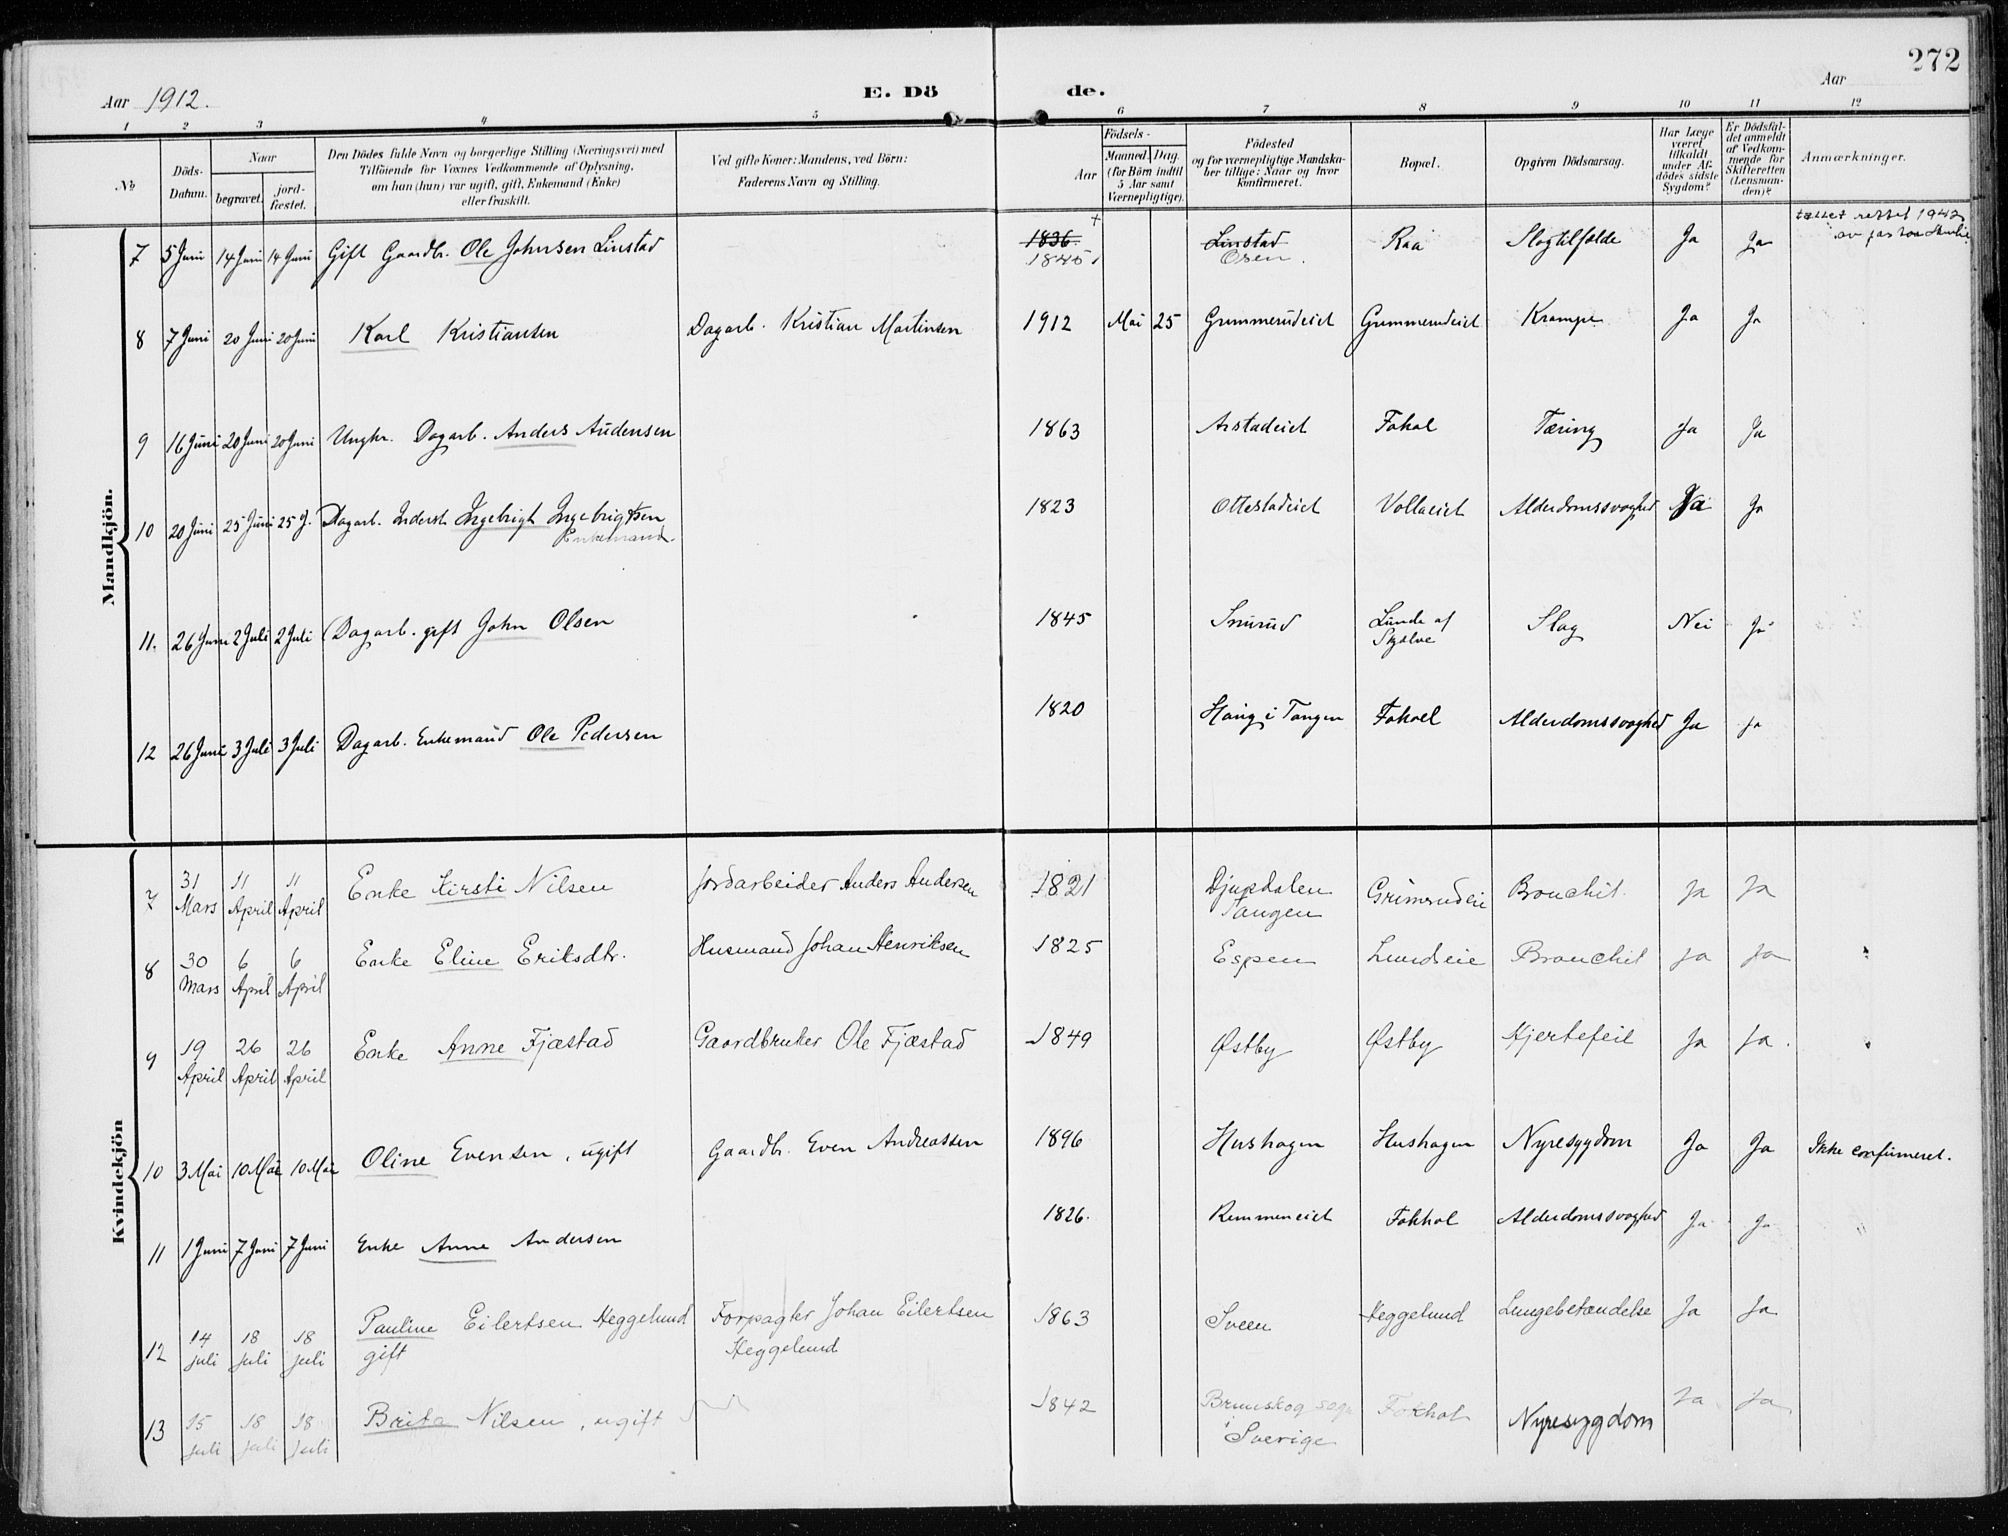 272
Aar 1912. E. Dö de. Aar
1 2 3 4 5 6 7 8 9 10 11 12
№ Döds-Datum. Naar begravet. jord-fæstet. Den Dödes fulde Navn og borgerlige Stilling (Næringsvei) med Tilföiende for Voxnes Vedkommende af Oplysning, om han (hun) var ugift, gift, Enkemand (Enke) eller fraskilt. Ved gifte Koner: Mandens, ved Börn: Faderens Navn og Stilling. Aar Födsels- Maaned. Dag. (for Börn indtil 5 Aar samt Værnepligtige). Födested og for værnepligtige Mandska-ber tillige: Naar og hvor Konfirmeret. Bopæl. Opgiven Dödsaarsag. Har Læge været tilkaldt under Af-dödes sidste Sygdom? Er Dödsfal-det anmeldt af Vedkom-mende for Skifteretten (Lensman-den)? Anmærkninger.
Mandkjön.
7 5 Juni 14 Juni 14 Juni Gift Gaardbr. Ole Johnsen Linstad 1836. 1845 Linstad Osen. Raa Slagtilfælde Ja Ja rettet 1942 av
8 7 Juni 20 Juni 20 Juni Karl Kristiansen Dagarb. Kristian Martinsen 1912 Mai 25 Grummerudeiet Grummerudeiet Krampe Ja Ja
9 16 Juni 20 Juni 20 Juni Ungkr. Dagarb. Anders Audensen 1863 Arstadeiet Fokol Tæring Ja Ja
10 20 Juni 25 Juni 25 J. Dagarb. Inderst Ingebrigt Ingebrigtsen Enkemand. 1823 Ottestadeiet Vollaeiet Alderdomssvaghed Ja Ja
11. 26 Juni 2 Juli 2 Juli Dagarb. gift John Olsen 1845 Snurud Lunde af Skjølve Slag Nei Ja
12 26 Juni 3 Juli 3 Juli Dagarb. Enkemand Ole Pedersen 1820 Haug i Tangen Fokoel Alderdomssvaghed Ja Ja
Kvindekjön
7 31 Mars 11 April 11 April Enke Kirsti Nilsen Jordarbeider Anders Andersen 1821 Djupdalen Tangen Grimerudeie Bronchit. Ja Ja
8 30 Mars 6 April 6 April Enke Eline Eriksdtr. Husmand Johan Henriksen 1825 Espen Lundseie Bronchit Ja Ja
9 19 April 26 April 26 April Enke Anne Fjæstad Gaardbruker Ole Fjæstad 1849 Østby Østby Hjertefeil Ja Ja.
10 3 Mai 10 Mai 10 Mai Oline Evensen, ugift Gaardbr. Even Andreassen 1896 Hushagen Hushagen Nyresygdom Ja Ja Ikke confirmeret.
11 1 Juni 7 Juni 7 Juni Enke Anne Andersen 1826. Remmeneiet Fokhol Alderdomssvaghed Ja Ja
12 14 juli 18 juli 18 juli Pauline Eilertsen Heggelund gift Forpagter Johan Eilertsen Heggelund 1863 Sveen Heggelund Lungebetændelse Ja Ja
13 15 juli 18 juli 18 juli Brita Nilsen, ugift 1842 Brunskog sogn i Sverige Fokhol Nyresygdom Ja Ja